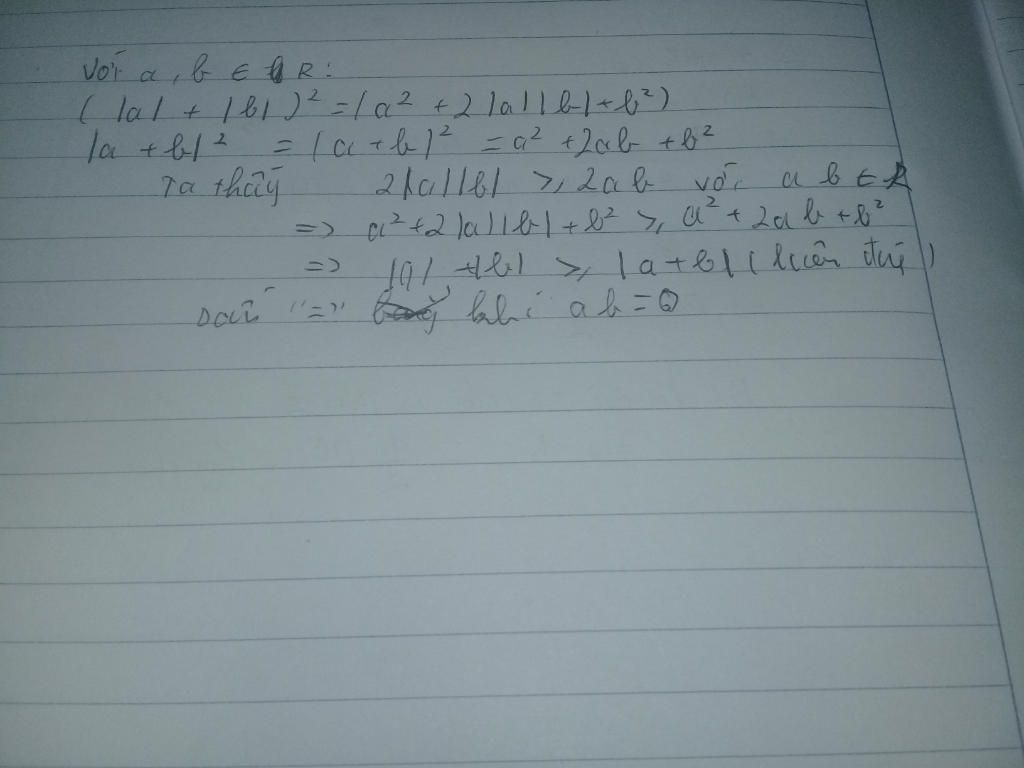 Với a, b ∈ R:
(|a| + |b|)² = (a² + 2|a||b| + b²)
|a + b|² = (a + b)² = a² + 2ab + b²
Ta thấy 2|a||b| ≥ 2ab với a b ∈ R
=> a² + 2|a||b| + b² ≥ a² + 2ab + b²
=> |a| + |b| ≥ |a + b| (luôn đúng)
Dấu "=" khi ab = 0